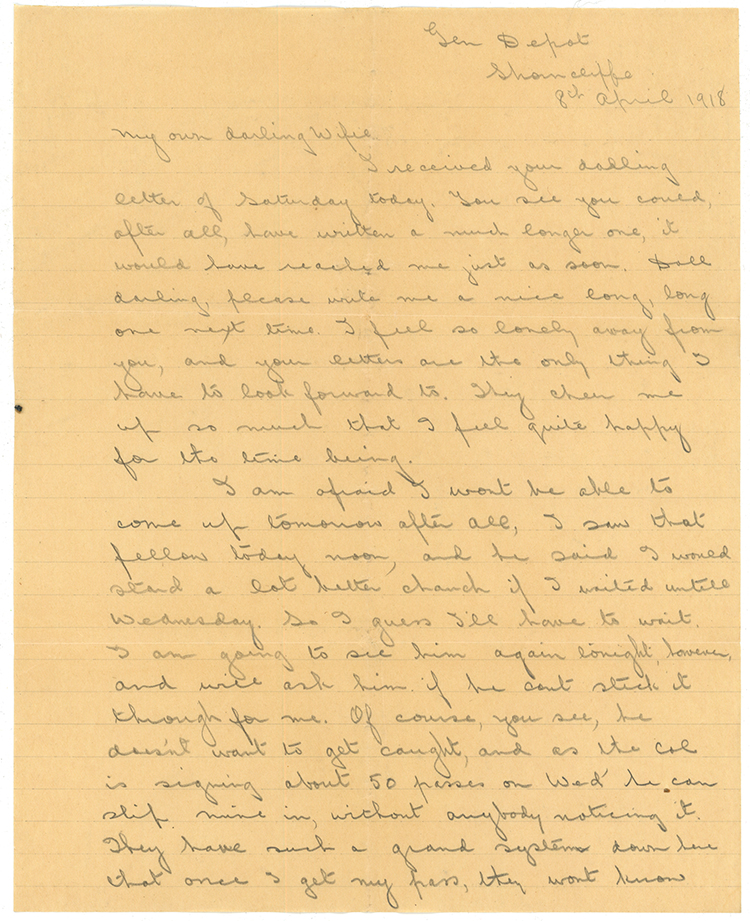 Gen Depot
Shorncliffe
8th April 1918
My own darling Wife.
I received your dadling
letter of Saturday today. You see you could,
after all, have written a much longer one, it
would have reached me just as soon. Doll
darling, please write me a nice long, long
one next time. I feel so lonely away from
you, and your letters are the only thing I
have to look forward to. They cheer me
up so much that I feel quite happy
for the time being.
I am afraid I wont be able to
come up tomorrow after all, I saw that
fellow today noon, and he said I would
stand a lot better chanch if I waited untill
Wednesday. So I guess I'll have to wait.
I am going to see him again tonight, however,
and will ask him if he cant stick it
through for me. Of course, you see, he
doesn't want to get caught, and as the Col
is signing about 50 passes on Wed' he can
slip mine in, without anybody noticing it.
They have such a grand system down here
that once I get my pass, they wont know